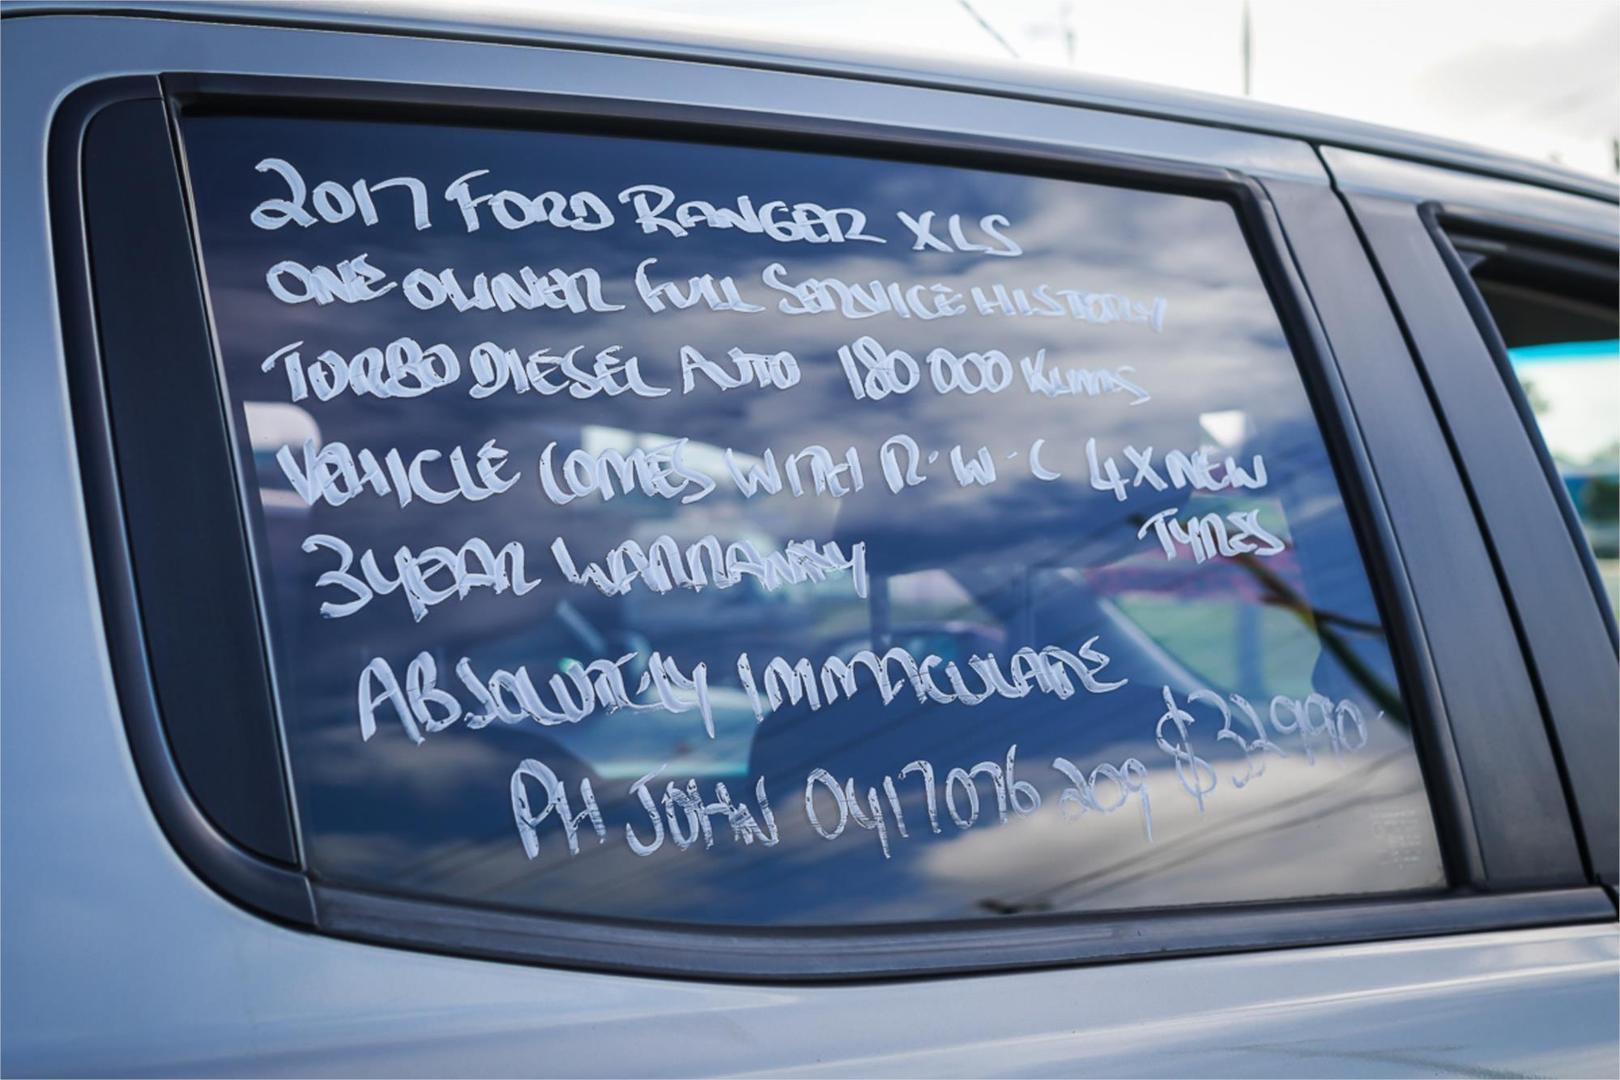 2017 FORD RANGER XLS
ONE OWNER FULL SERVICE HISTORY
TORBO DIESEL AUTO 180 000 KLMS
VEHICLE COMES WITH R.W.C 4XNEW
TYRES
3 YEAR WARRANTY
ABSOLUTELY IMMACULATE
$32990.
PH JOHN 0417076 209